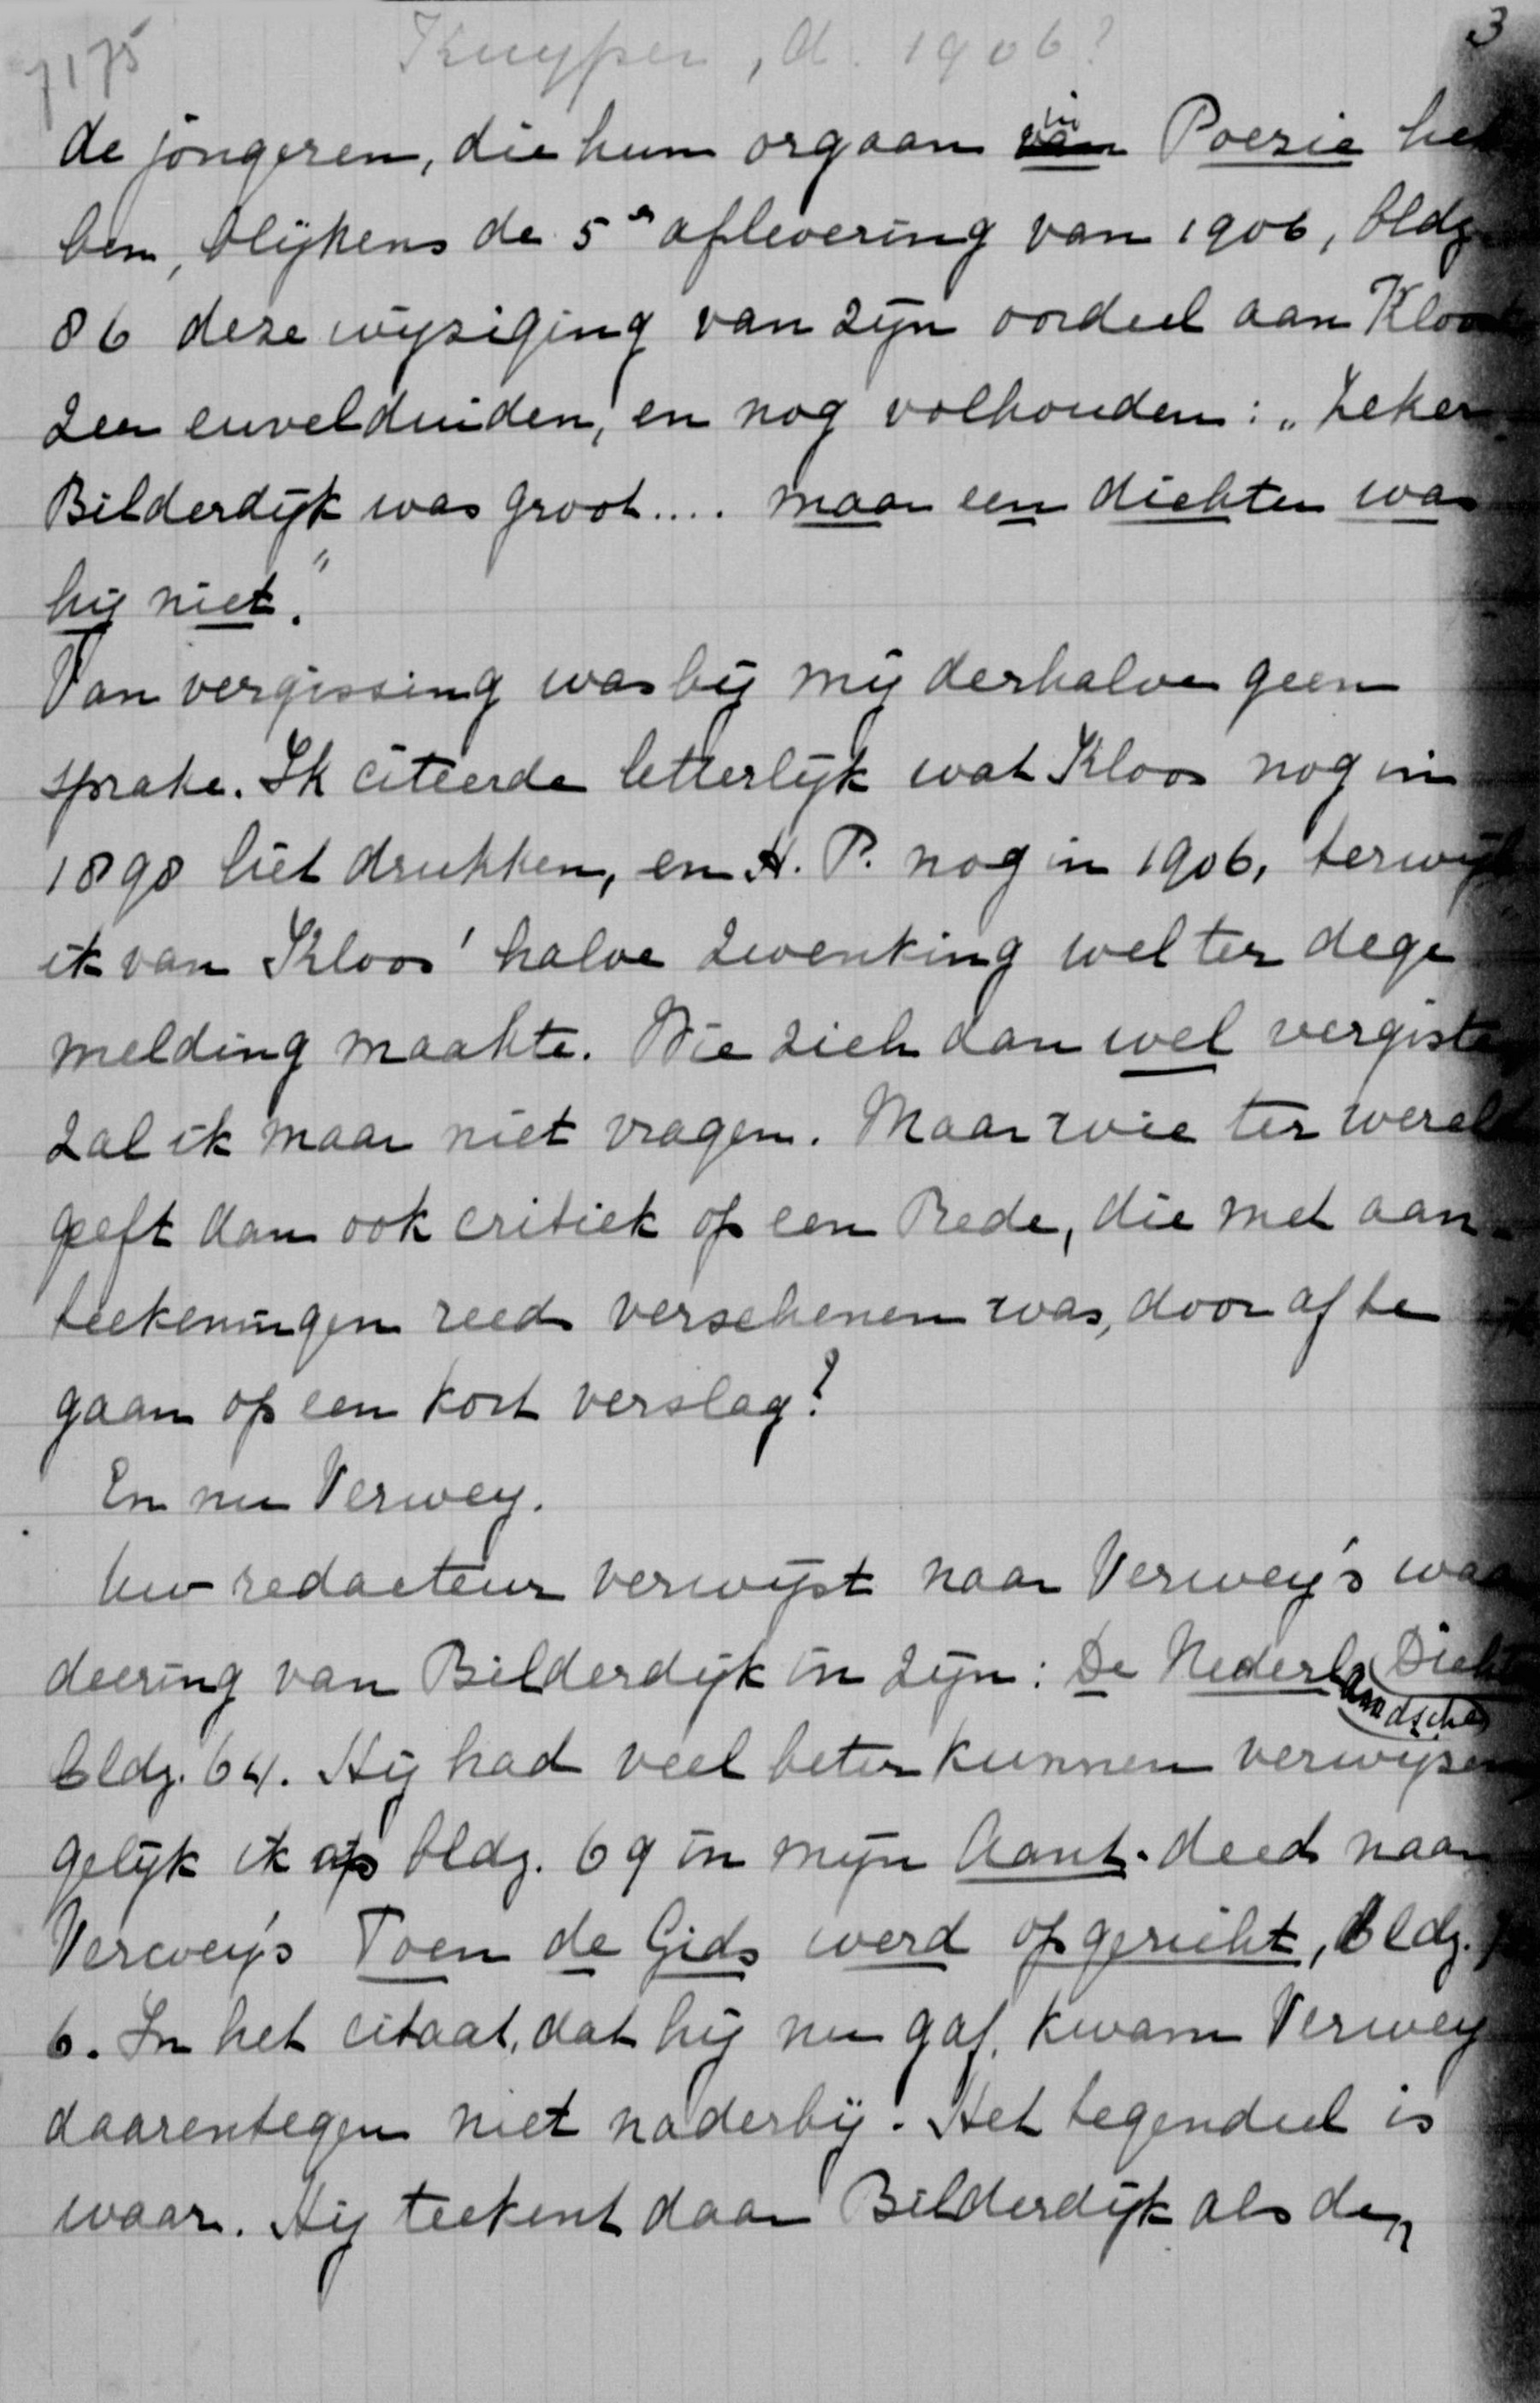 7175 Kuyper, A. 1906? 3
de jongeren, die hun orgaan in Poezie heb
ben, blijkens de 5e aflevering van 1906, bldz.
86 deze wijziging van zijn oordeel aan Kloos
zeer euvelduiden, en nog volhouden: „Zeker
Bilderdijk was groot.... maar een dichter was
hij niet."
Van vergissing was bij mij derhalve geen
sprake. Ik citeerde letterlijk wat Kloos nog in
1898 liet drukken, en H. P. nog in 1906, terwijl
ik van Kloos' halve zwenking wel ter dege
melding maakte. Wie zich dan wel vergiste
zal ik maar niet vragen. Maar wie ter wereld
geeft dan ook critiek op een Rede, die met aan-
teekeningen reeds verschenen was, door af te
gaan op een kort verslag?
En nu Verwey.
Uw redacteur verwijst naar Verwey's waar
deering van Bilderdijk in zijn: De Nederlandsche Dicht
bldz. 64. Hij had veel beter kunnen verwijzen
gelijk ik op bldz. 69 in mijn Aant. deed naar
Verwey's Toen de Gids werd opgericht, bldz.
6. In het citaat, dat hij nu gaf, kwam Verwey
daarentegen niet naderbij. Het tegendeel is
waar. Hij teekent daar Bilderdijk als den